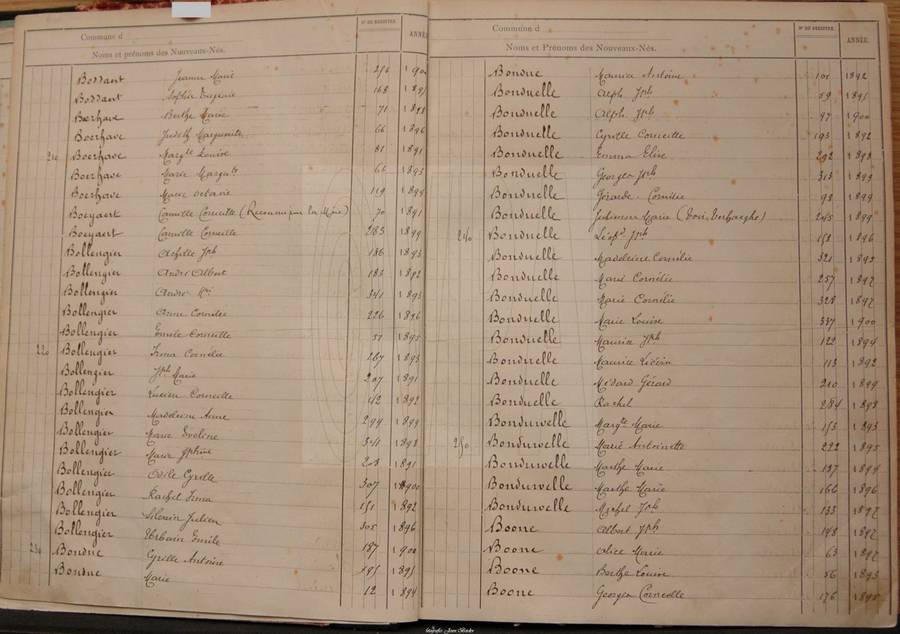 Commune d
Nos DU REGISTRE
ANNÉE
Noms et prénoms des Nouveaux-Nés.
Bossant Jeanne Marie 256 1900
Bossant Sophie Eugenie 168 189
Boerhave Berthe Marie 71 1898
Boerhave Judith Marguerite 66 1896
210 Boerhave Margte Louise 81 1891
Boerhave Marie Margte 1893
Boerhave Marie Octavie 119 1894
Boeyaert Camille Corneille (Reconnu par la Mère) 70 1891
Boeyaert Camille Corneille 283 1899
Bollengier Achille Jph 186 1893
Bollengier André Albert 183 1892
Bollengier André 341 1893
Bollengier Anne Cornélie 226 1896
Bollengier Emile Corneille 51 1895
220 Bollengier Irma Cornélie 267 1893
Bollengier Jph Marie 207 1891
Bollengier Lucien Corneille 42 1892
Bollengier Madeleine Anne 294 1899
Bollengier Marie Eveline 341 1898
Bollengier Marie Jphine 208 1891
Bollengier Odile Cyrille 307 1900
Bollengier Rachel Irma 151 1892
Bollengier Silvain Julien 305 1896
Bollengier Urbain Emile 187 1900
230 Bondue Cyrille Antoine 195 1895
Bondue Marie 12 1894
Commune d
Nos DU REGISTRE
ANNÉE.
Noms et Prénoms des Nouveaux-Nés.
Bondue Maurice Antoine 101 1892
Bonduelle Alph. Jph 59 1895
Bonduelle Alph. Jph 97 1900
Bonduelle Cyrille Corneille 193 1892
Bonduelle Emma Elise 292 1898
Bonduelle Georges Jph 313 1899
Bonduelle Gérarde Cornélie 93 1899
Bonduelle Julienne Marie (Voir Verhaeghe) 245 1899
240 Bonduelle Léopd Jph 158 1896
Bonduelle Madeleine Cornélie 321 1895
Bonduelle Marie Cornélie 257 1897
Bonduelle Marie Cornélie 328 1897
Bonduelle Marie Louise 337 1900
Bonduelle Maurice Jph 122 1894
Bonduelle Maurice Liévin 113 1892
Bonduelle Médard Gérard 210 1899
Bonduelle Rachel 284 1898
Bonduwelle Margte Marie 153 1893
250 Bonduwelle Marie Antoinette 292 1895
Bonduwelle Marthe Marie 197 1894
Bonduwelle Marthe Marie 166 1896
Bonduwelle Michel Jph 133 1897
Boone Albert Jph 198 1897
Boone Alice Marie 63 1897
Boone Berthe Louise 56 1893
Boone Georges Corneille 176 1895